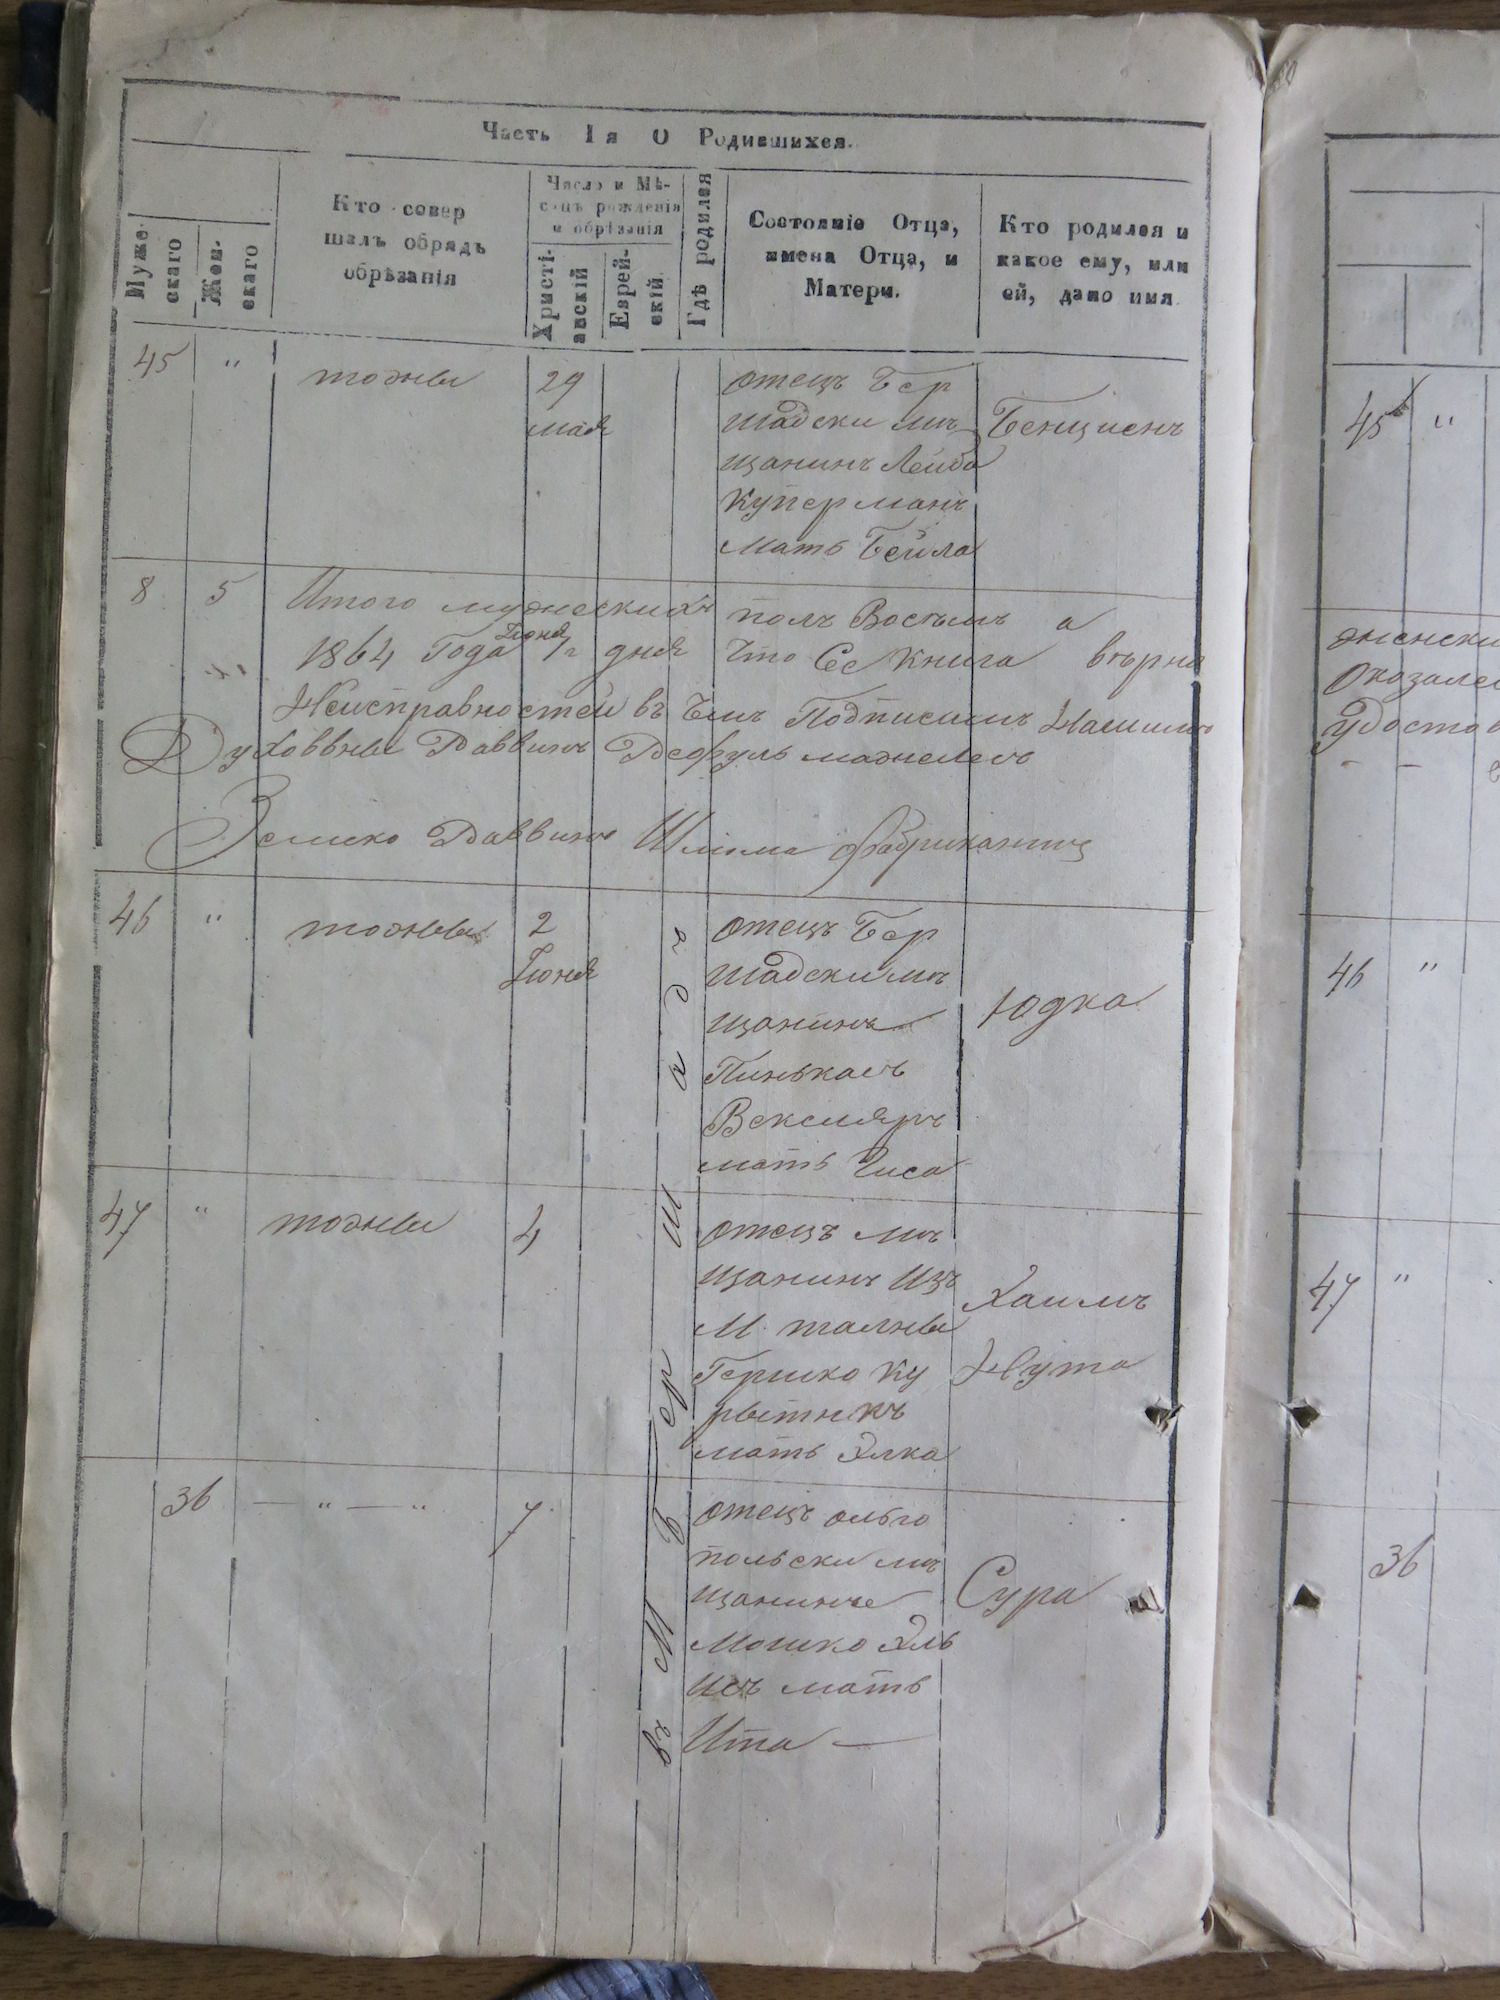 Часть Iя О Родившихся.
Мужескаго
Женскаго
Кто совершалъ обрядъ обрѣзанія
Число и Мѣсяцъ рожденія и обрѣзанія
Христіанскій
Еврейскій
Гдѣ родился
Состояніе Отца,
имена Отца, и
Матери.
Кто родился и
какое ему, или
ей, дано имя
45 " тотже 29
мая
отецъ Бер
шадски мѣ
щанинъ Лейба
Куперманъ
мать Бейла
Бенционъ
8 5 Итого мужескихъ полъ Восьмъ а
1864 Года Іюня 1 дня что Се книга вѣрна
Неисправностей въ Ѣмъ Подписимъ Нашимъ
Духоввны Раввинъ
Раввинъ Шліома Фабрикантъ
46 " тотже 2
Іюня
отецъ Бер
шадски мѣ
щанинъ
Пинькасъ
Вексляръ
мать
Юдка
47 " тотже 4
отецъ мѣ
щанинъ Изъ
М. талны
Гершко Ку
мать Элка
Хаимъ
Нута
36 — " — " 7
отецъ ольго
польски мѣ
щанинъ
Мошко Эль
мать
Ита —
Сура
въ М. Бершадѣ
45 "
женски
оказалос
удостов
46 "
47 "
36